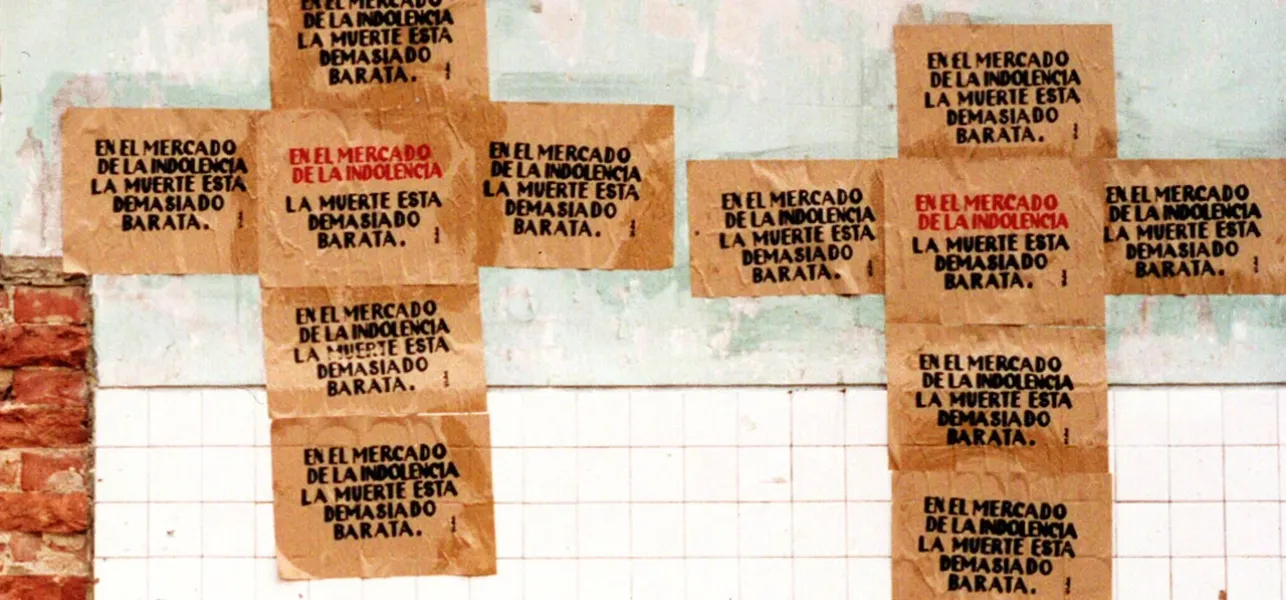 EN EL MERCADO
DE LA INDOLENCIA
LA MUERTE ESTA
DEMASIADO
BARATA.
EN EL MERCADO
DE LA INDOLENCIA
LA MUERTE ESTA
DEMASIADO
BARATA.
EN EL MERCADO
DE LA INDOLENCIA
LA MUERTE ESTA
DEMASIADO
BARATA.
EN EL MERCADO
DE LA INDOLENCIA
LA MUERTE ESTA
DEMASIADO
BARATA.
EN EL MERCADO
DE LA INDOLENCIA
LA MUERTE ESTA
DEMASIADO
BARATA.
EN EL MERCADO
DE LA INDOLENCIA
LA MUERTE ESTA
DEMASIADO
BARATA.
EN EL MERCADO
DE LA INDOLENCIA
LA MUERTE ESTA
DEMASIADO
BARATA.
EN EL MERCADO
DE LA INDOLENCIA
LA MUERTE ESTA
DEMASIADO
BARATA.
EN EL MERCADO
DE LA INDOLENCIA
LA MUERTE ESTA
DEMASIADO
BARATA.
EN EL MERCADO
DE LA INDOLENCIA
LA MUERTE ESTA
DEMASIADO
BARATA.
EN EL MERCADO
DE LA INDOLENCIA
LA MUERTE ESTA
DEMASIADO
BARATA.
EN EL MERCADO
DE LA INDOLENCIA
LA MUERTE ESTA
DEMASIADO
BARATA.